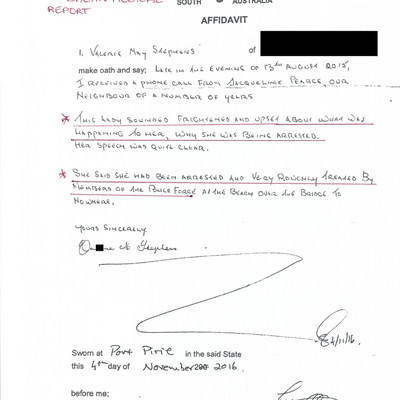 REPORT
SOUTH AUSTRALIA
AFFIDAVIT
I, VALERIE MAY STEPHENS of
make oath and say; LATE IN THE EVENING OF 13TH AUGUST 2015,
I RECEIVED A PHONE CALL FROM JACQUELINE PEARCE, OUR
NEIGHBOUR OF A NUMBER OF YEARS
* THIS LADY SOUNDED FRIGHTENED AND UPSET ABOUT WHAT WAS
HAPPENING TO HER, WHY SHE WAS BEING ARRESTED.
HER SPEECH WAS QUITE CLEAR.
* SHE SAID SHE HAD BEEN ARRESTED AND VERY ROUGHLY TREATED BY
MEMBERS OF THE POLICE FORCE AT THE BEACH OVER THE BRIDGE TO
NOWHERE.
YOURS SINCERELY
Stephens
4/11/16.
Sworn at Port Pirie in the said State
this 4th day of November 2016.
before me;